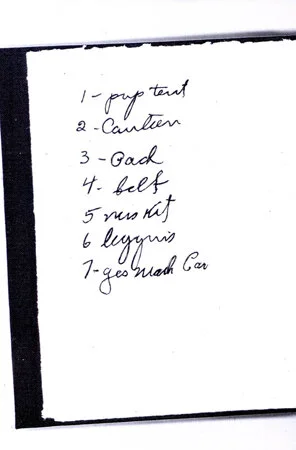 1 - pup tent
2 - Canteen
3 - Pack
4 - belt
5 mess Kit
6 leggins
7 - gas mask Car